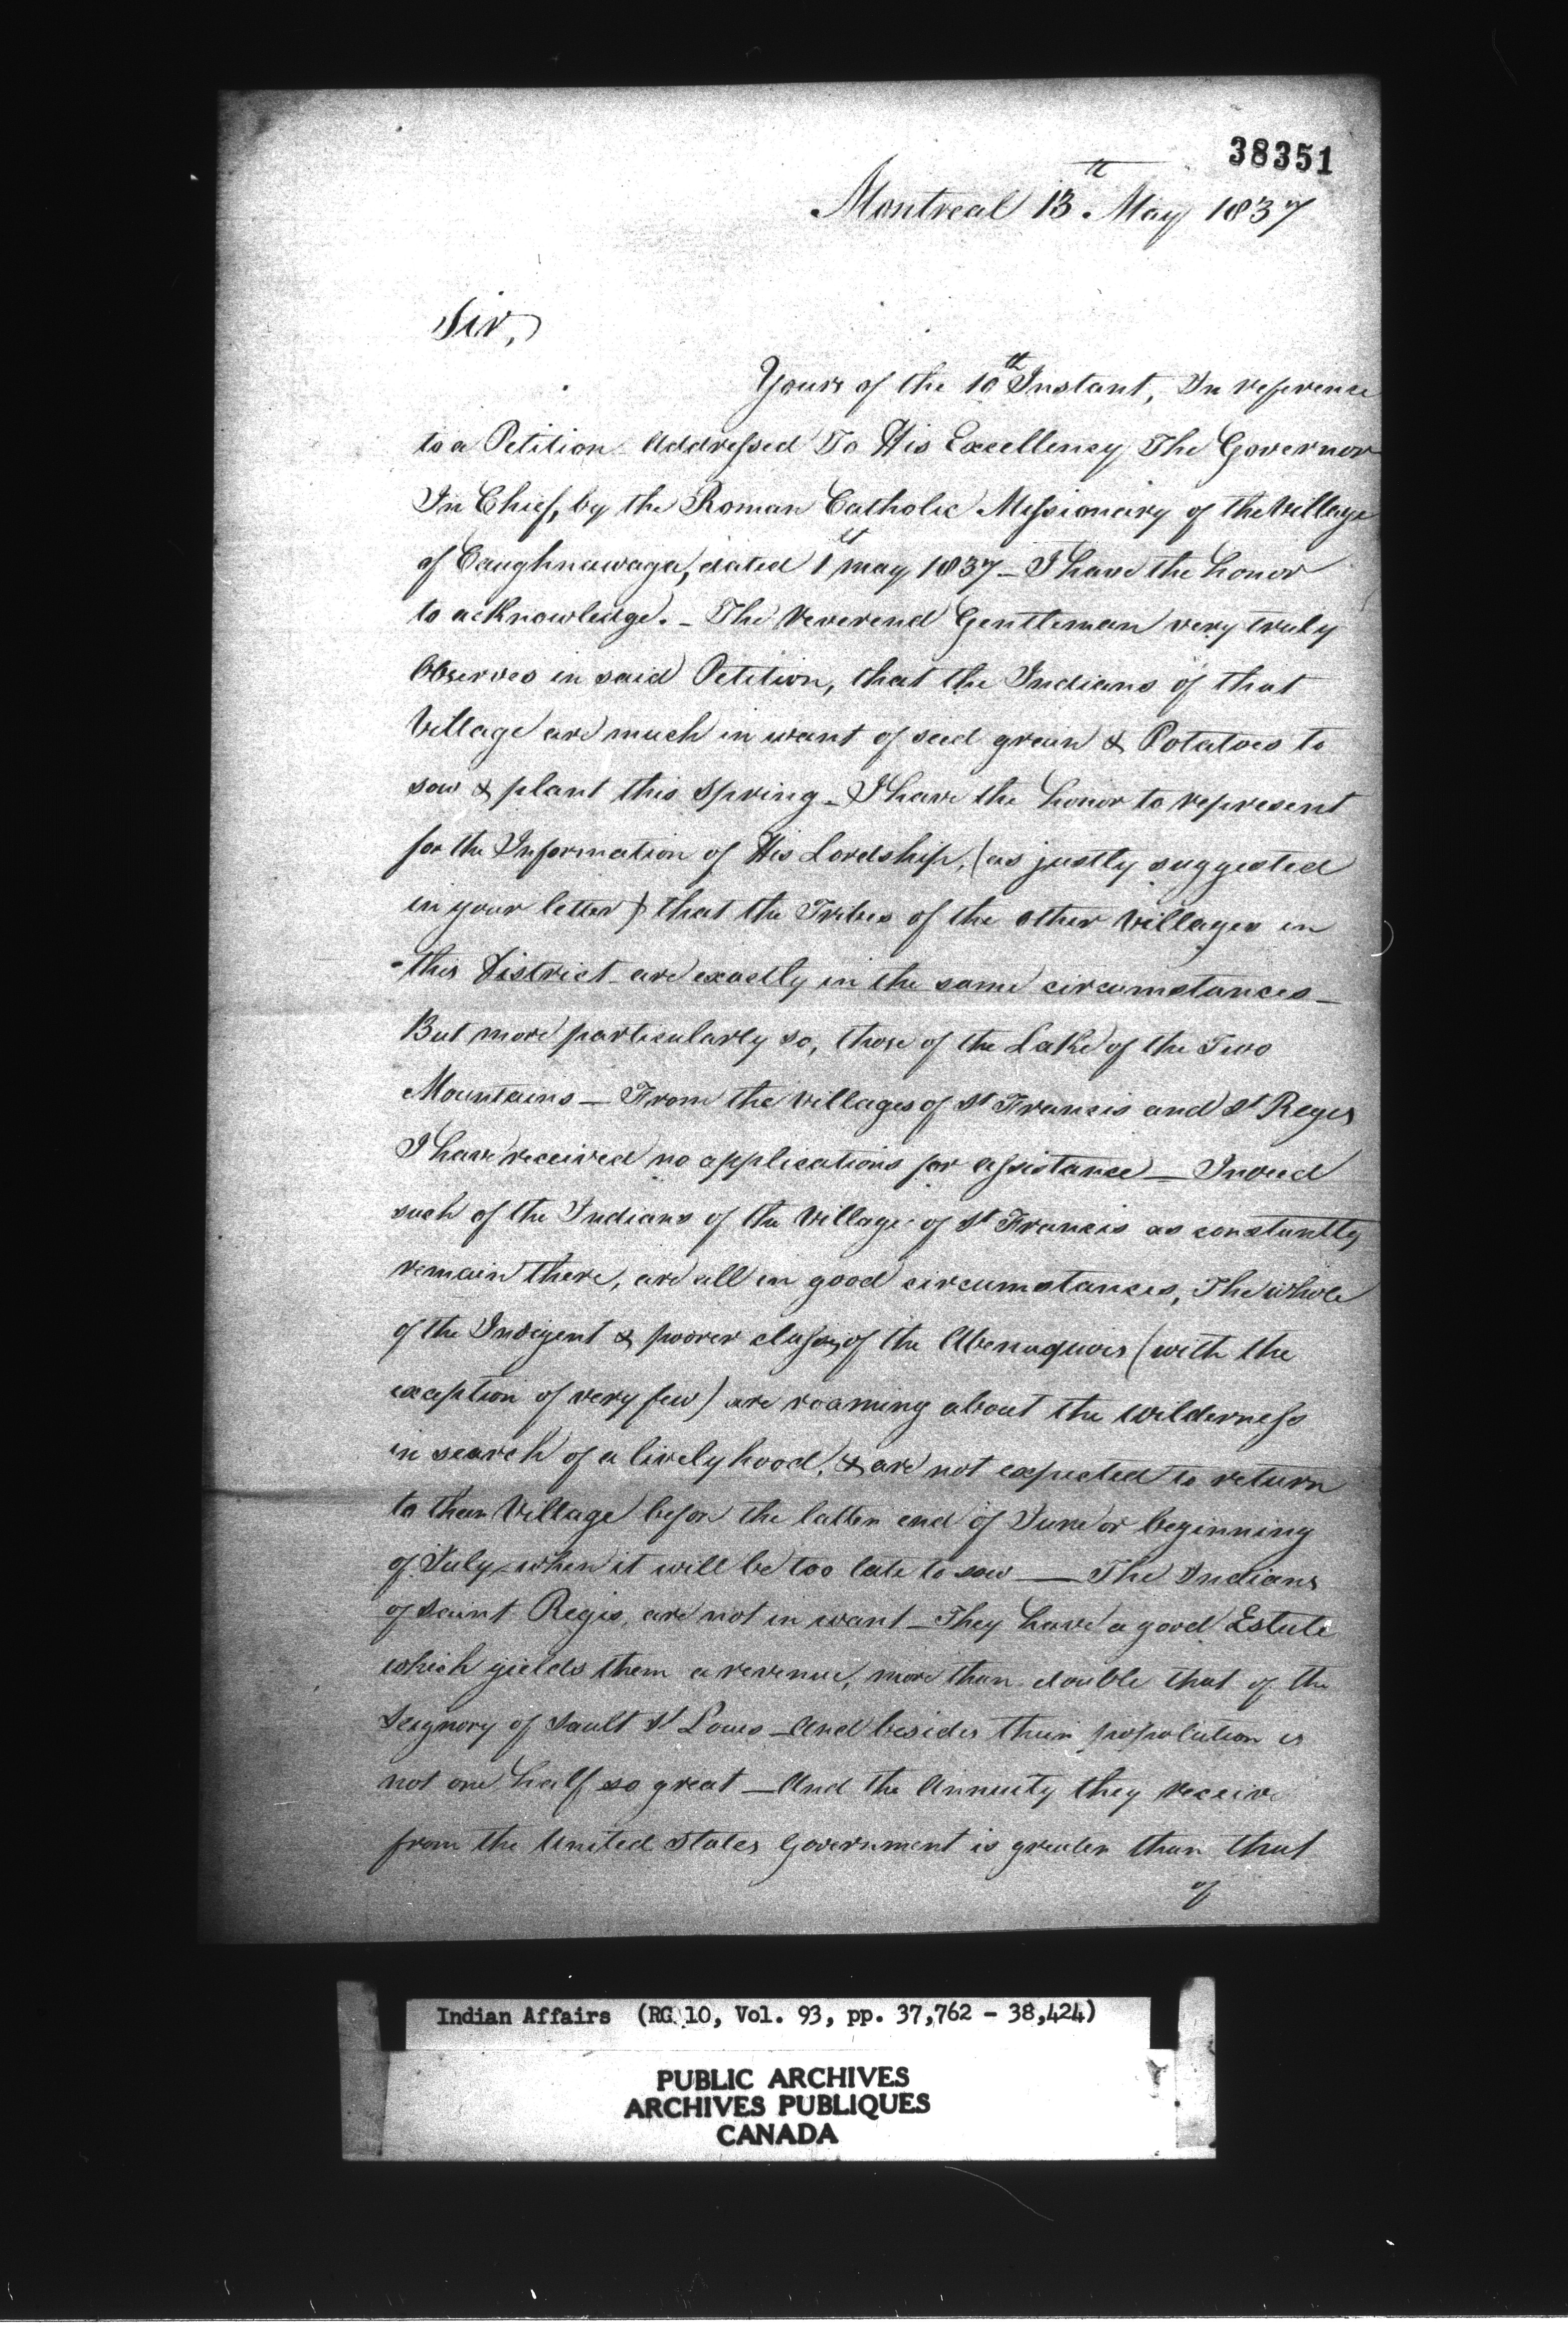 38351
Montreal 13th May 1837
Sir,
Yours of the 10th Instant, In reference
to a Petition Addressed To His Excellency The Governor
In Chief, by the Roman Catholic Missionary of the Village
of Caughnawaga, dated 1st may 1837 — I have the honor
to acknowledge. — The Reverend Gentleman very truly
Observes in said Petition, that the Indians of that
Village are much in want of seed grain & Potatoes to
sow & plant this Spring — I have the honor to represent
for the Information of His Lordship, (as justly suggested
in your letter) that the Tribes of the other Villages in
this District are exactly in the same circumstances —
But more particularly so, those of the Lake of the Two
Mountains — From the Villages of St Francis and St Regis
I have received no applications for assistance — Indeed
such of the Indians of the Village of St Francis as constantly
remain there, are all in good circumstances, The whole
of the Indigent & poorer class, of the Abenaquois (with the
exception of very few) are roaming about the Wilderness
in search of a livelyhood, & are not expected to return
to their Village before the latter end of June or beginning
of July, when it will be too late to sow — The Indians
of Saint Regis, are not in want — They have a good Estate
which yields them a revenue, more than double that of the
Seignory of Sault St Louis — And besides their population is
not one half so great — And the Annuity they receive
from the United States Government is greater than that
of
Indian Affairs (RG 10, Vol. 93, pp. 37,762 - 38,424)
PUBLIC ARCHIVES
ARCHIVES PUBLIQUES
CANADA